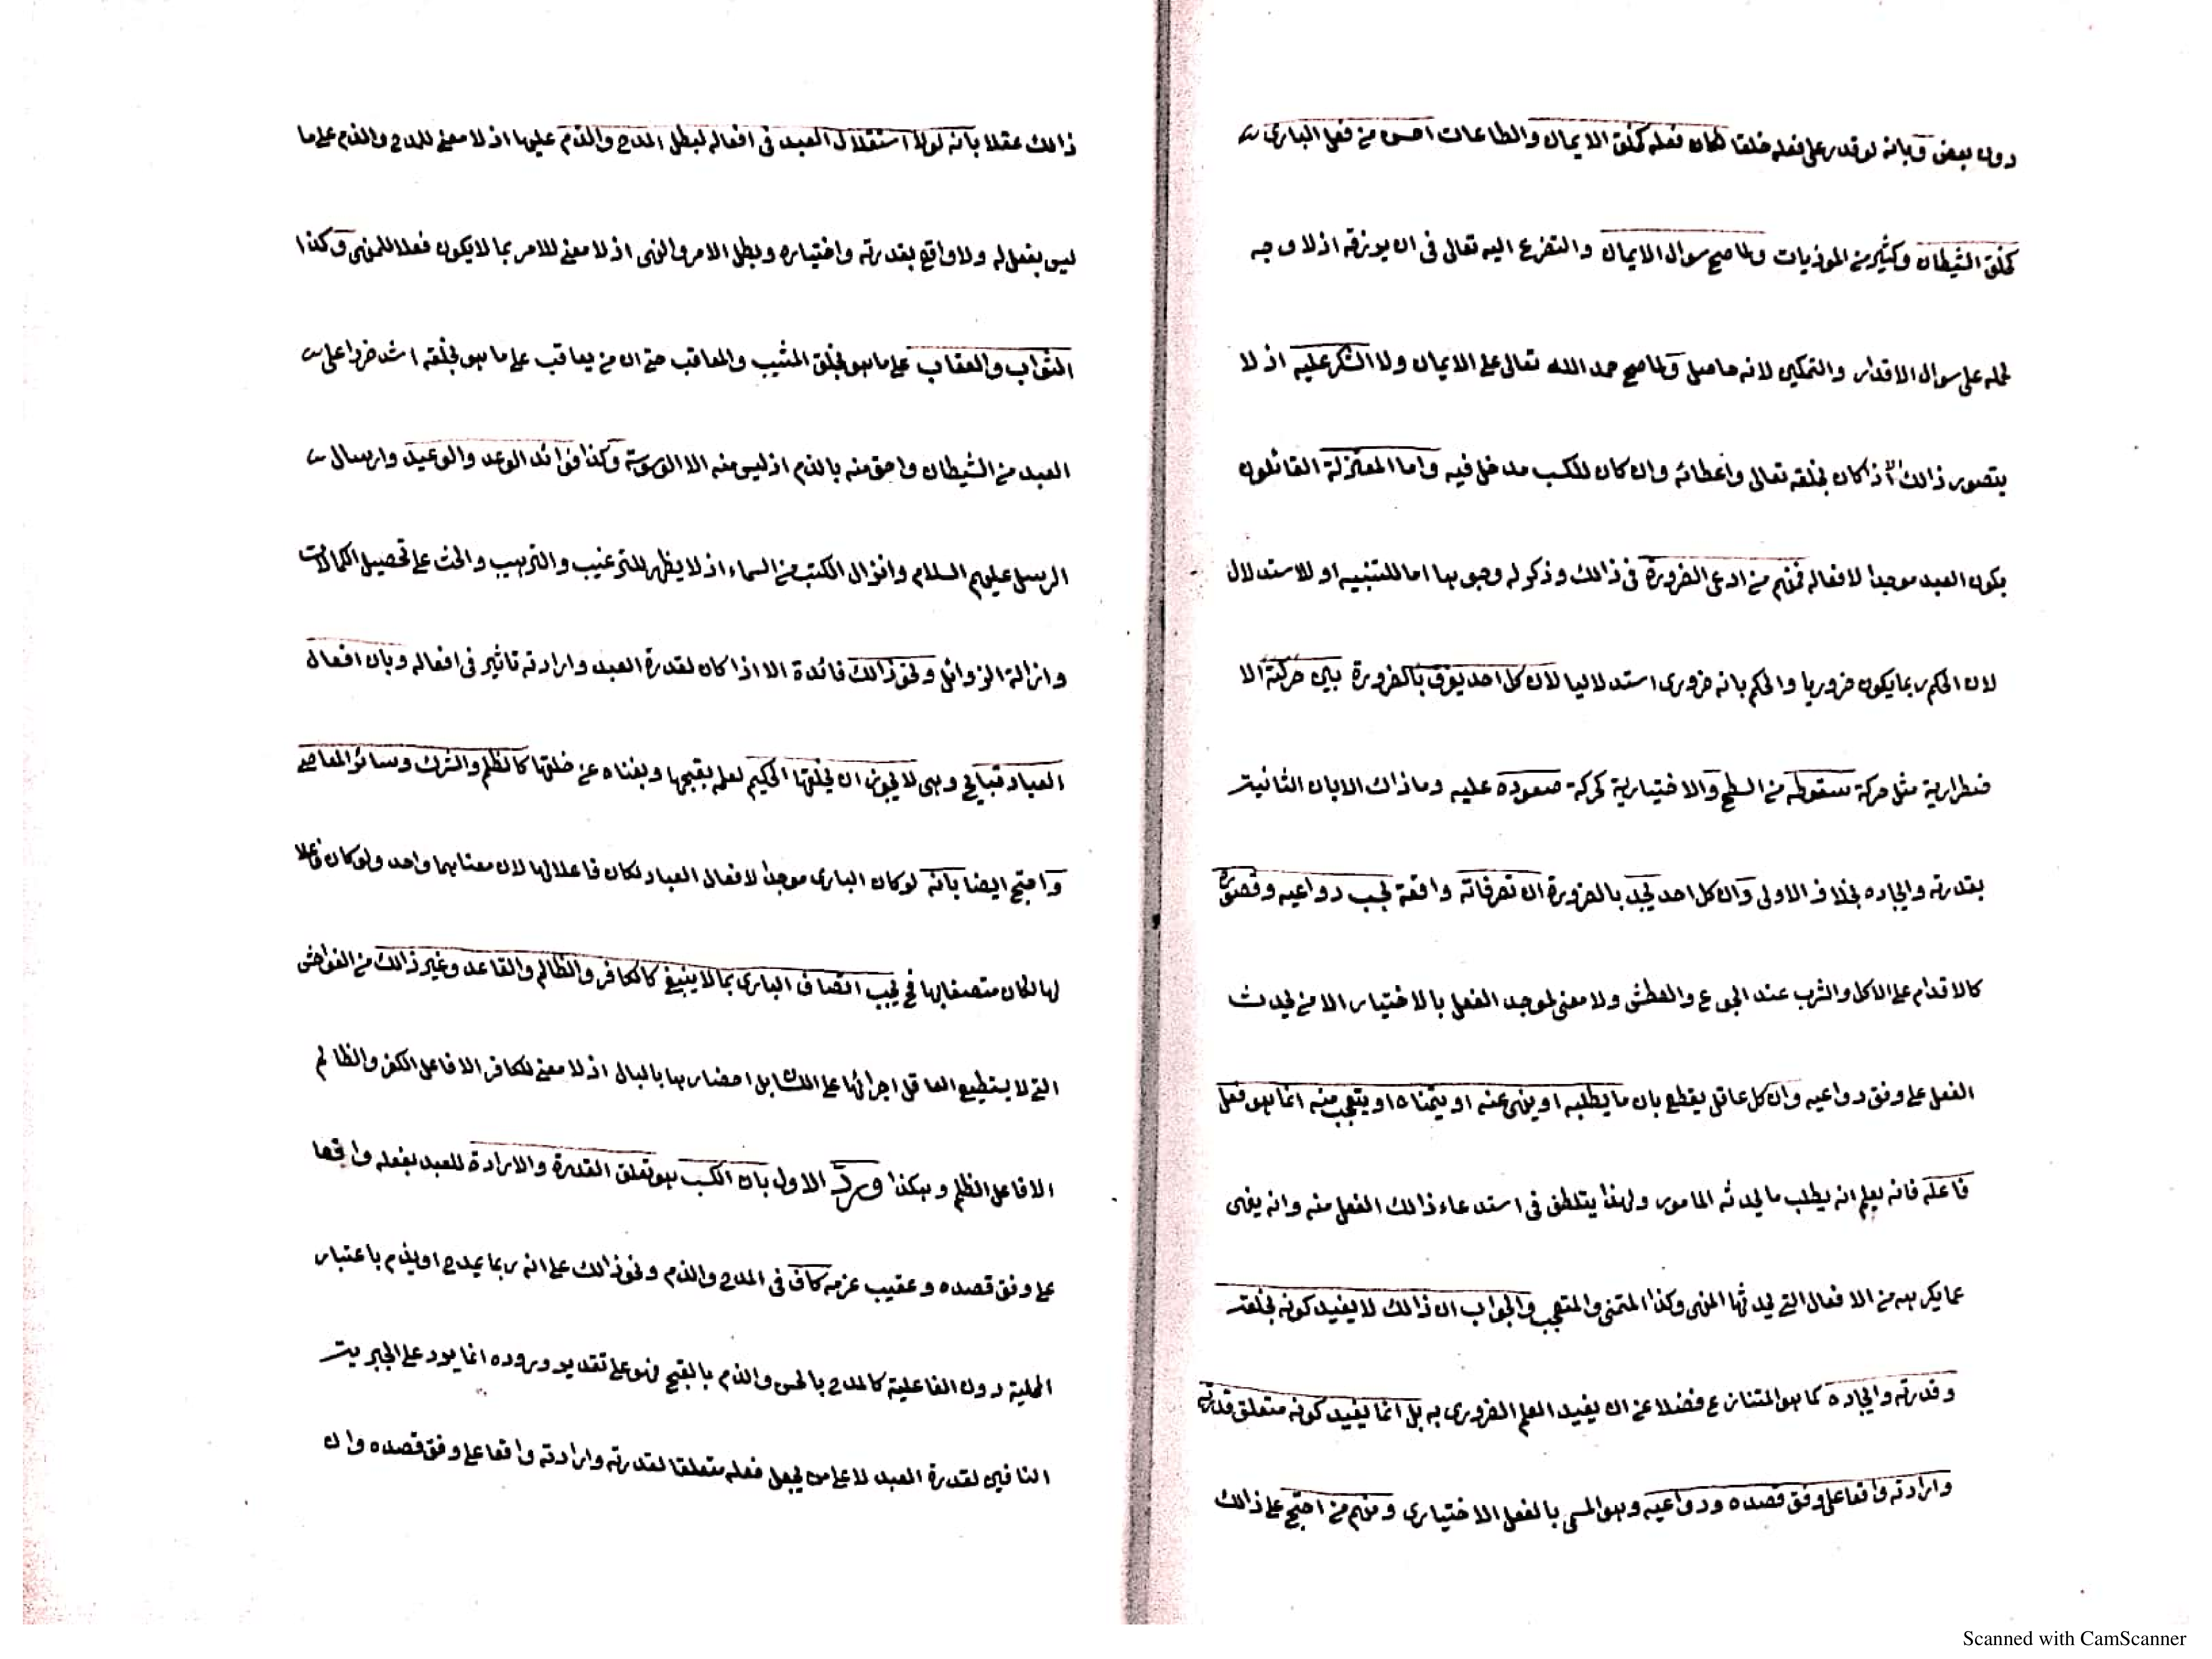 دون بعض وبانه لو قدر على فعله خلقا لكان فعله كخلق الايمان والطاعات احسن من فعل البارى
كخلق الشيطان وكثير من الموذيات ولما صح سوال الايمان والتضرع اليه تعالى فى ان يرزقه اذ لا وجه
لحمله على سوال الاقدار والتمكين لانه حاصل ولما صح حمد الله تعالى على الايمان ولا الشكر عليه اذ لا
يتصور ذالك الا اذا كان بخلقه تعالى واعطائه وان كان للكسب مدخل فيه واما المعتزلة القائلون
بكون العبد موجدا لافعاله فمنهم من ادعى الضرورة فى ذالك وذكر له وجوبها اما للتنبيه او للاستدلال
لان الحكم ربما يكون ضروريا والحكم بانه ضرورى استدلاليا لان كل احد يفرق بالضرورة بين حركته الا
ضطرارية مثل حركة سقوطه من السطح والاختيارية كحركة صعوده عليه وما ذاك الا بان الثانية
بقدرته وايجاده بخلاف الاولى وان كل احد يجد بالضرورة ان تصرفاته واقعة بحسب دواعيه وقصوده
كالاقدام على الاكل والشرب عند الجوع والعطش ولا معنى لموجد الفعل بالاختيار الا من يحدث
الفعل على وفق دواعيه وان كل عاقل يقطع بان ما يطلبه او ينهى عنه او يتمناه او يتعجب منه انما هو فعل
فاعله فانه يعلم انه يطلب ما يحدثه المامور ولهذا يتلطف فى استدعاء ذالك الفعل منه وانه ينهى
عما يكرهه من الافعال التى يحدثها المنهى وكذا المتمنى والمتعجب والجواب ان ذالك لا يفيد كونه بخلقه
وقدرته وايجاده كما هو المتنازع فضلا عن ان يفيد العلم الضرورى به بل انما يفيد كونه متعلق قدرته
وارادته واقعا على وفق قصده ودواعيه وهو المسمى بالفعل الاختيارى ومنهم من احتج على ذالك
ذالك عقلا بانه لولا استقلال العبد فى افعاله لبطل المدح والذم عليها اذ لا معنى للمدح والذم على ما
ليس بفعل له ولا واقع بقدرته واختياره وبطل الامر والنهى اذ لا معنى للامر بما لا يكون فعلا للمنهى وكذا
الثواب والعقاب على ما هو بخلق المثيب والمعاقب حتى ان من يعاقب على ما هو بخلقه اشد ضررا على
العبد من الشيطان واحق منه بالذم اذ ليس منه الا الوسوسة وكذا فوائد الوعد والوعيد وارسال
الرسل عليهم السلام وانزال الكتب من السماء اذ لا يظهر للترغيب والترهيب والحث على تحصيل الكمالات
وازالة الرذائل ونحو ذالك فائدة الا اذا كان لقدرة العبد وارادته تاثير فى افعاله وبان افعال
العباد قبائح وهى لا يجوز ان يخلقها الحكيم لعلمه بقبحها وبغناه عن خلقها كالظلم والشرك وسائر المعاصى
واحتج ايضا بانه لو كان البارى موجدا لافعال العباد لكان فاعلا لها لان معناهما واحد ولو كان فاعلا
لها لكان متصفا بها فح يجب اتصاف البارى بما لا ينبغى كالكافر والظالم والقاعد وغير ذالك من الفواحش
التى لا يستطيع العاقل اجرائها على اللسان بل احضارها بالبال اذ لا معنى للكافر الا فاعل الكفر والظالم
الا فاعل الظلم وهكذا ورد الاول بان الكسب هو تعلق القدرة والارادة للعبد بفعله واقعا
على وفق قصده وعقيب عزمه كاف فى المدح والذم ونحو ذالك على انه ربما يمدح او يذم باعتبار
المحلية دون الفاعلية كالمدح بالحسن والذم بالقبح فهو على تقدير وروده انما يرد على الجبرية
النافين لقدرة العبد لا على من يجعل فعله متعلقا لقدرته وارادته واقعا على وفق قصده وان
Scanned with CamScanner